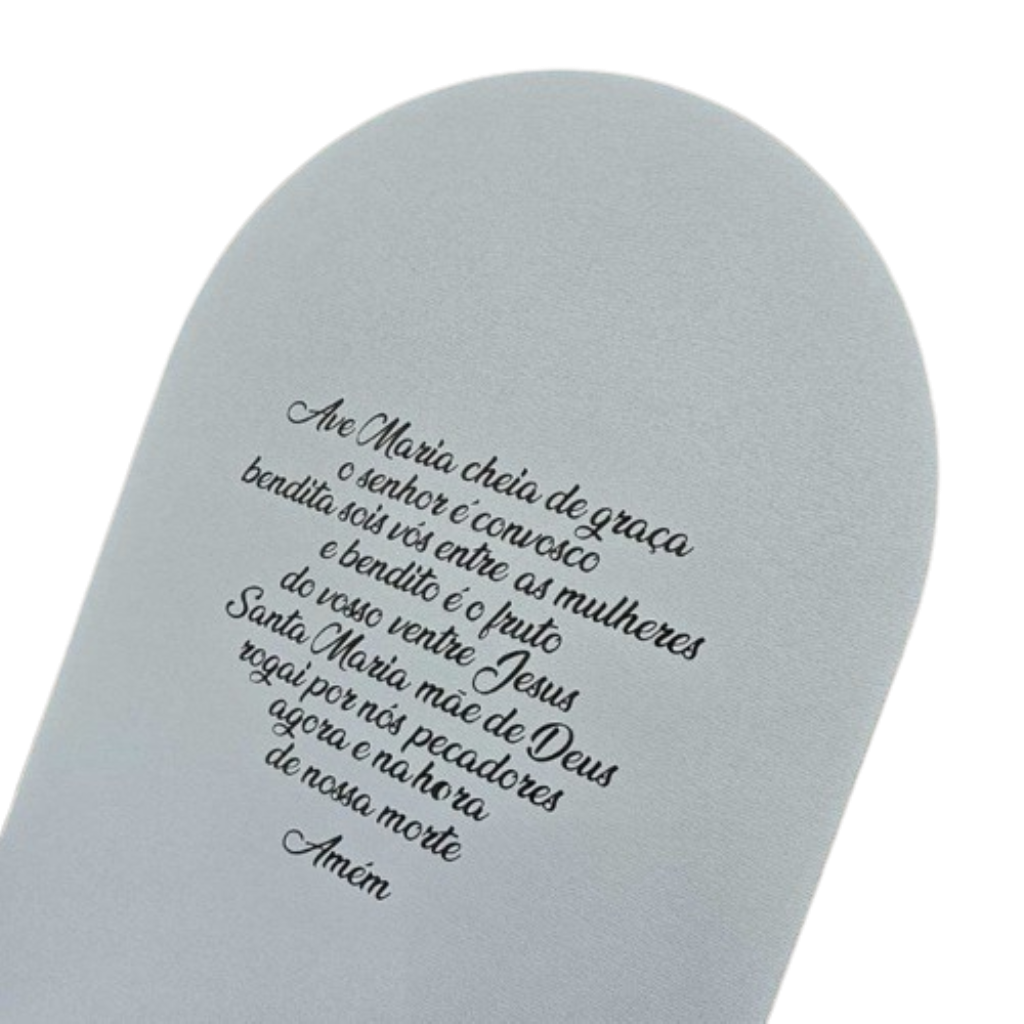 Ave Maria cheia de graça
o senhor é convosco
bendita sois vós entre as mulheres
e bendito é o fruto
do vosso ventre Jesus
Santa Maria mãe de Deus
rogai por nós pecadores
agora e na hora
de nossa morte
Amém